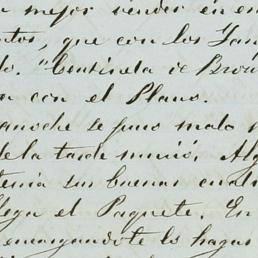 mejor vender en en
ntos, que con los Yan
do. "Centinela de Brow
con el Plano.
anoche se puso malo
de la tarde murió, Alg
tenia sin buenas cuali
llega el Paquete. En
encargandote lo hagas